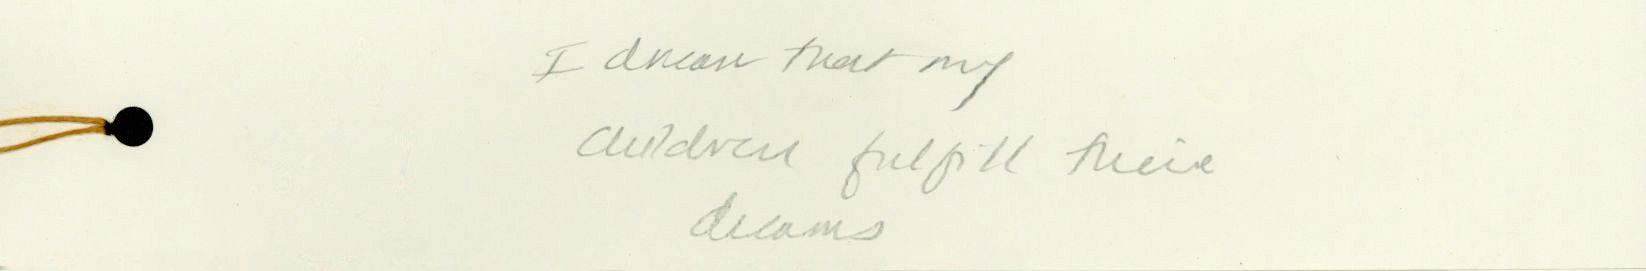 I dream that my
children fulfill their
dreams